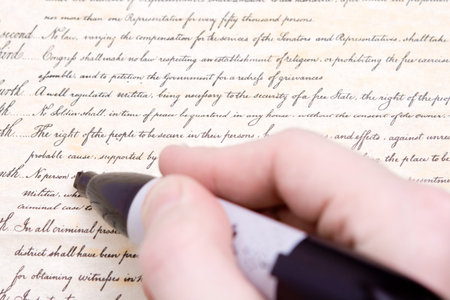 nor more than one Representative for every fifty thousand persons.
second ... No law, varying the compensation for the services of the Senators and Representatives, shall take
hird ... Congress shall make no law respecting an establishment of religion, or prohibiting the free exercise
assemble, and to petition the Government for a redress of grievances
A well regulated militia, being necessary to the security of a free State, the right of the people
No Soldier shall, in time of peace be quartered in any house, without the consent of the owner,
The right of the people to be secure in their persons, and effects, against
probable cause, supported by the place to be
No person
militia,
criminal case to presentment
In all criminal
district shall have been
for obtaining witnesses in